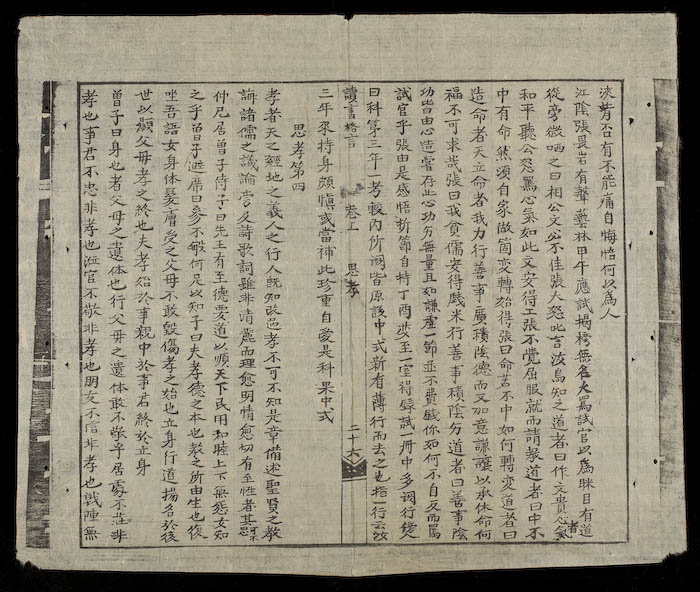 浹背否有不能痛自悔悟何以為人
江陰張畏岩有聲藝林甲午應試揭榜無名大罵試官以為眯目有道者
從旁微哂之曰相公文必不佳張大怒叱言汝烏知之道者曰作文貴心氣
和平聽公怒罵心氣如此文安得工張不覺屈服就而請教道者曰中不
中有命然須自家做箇变轉始得張曰命苦不中如何轉变道者曰
造命者天立命者我力行善事廣積陰德而又加意謙讓以承休命何
福不可求哉張曰我貧儒安得錢米行善事積陰功道者曰善事陰
功皆由心造嘗存此心功德無量且如謙虛一節並不費錢你如何不自反而罵
試官乎張由是感悟折節自持丁酉夢至一室得試一冊中多闕行
曰科第三年一考較内所闕皆原該中式新有薄行而去之也指一行云汝
言格言 卷上 思孝 二十六
三年來持身頗慎或當補此珍重自愛是科果中式
思孝第四
孝者天之經地之義人之行人既知改過孝不可不知是章備述聖賢之教
誨諸儒之議論嘗及詩歌詞雖非清麗而理愈明情愈切有至性者其
仲尼居曾子侍子曰先王有至德要道以順天下民用和睦上下無怨女知
之乎曾子避席曰參不敏何足以知子曰夫孝德之本也教之所由生也復
坐吾語女身体髮膚受之父母不敢毀傷孝之始也立身行道揚名於後
世以顯父母孝之終也夫孝始於事親中於事君終於立身
曾子曰身也者父母之遺体也行父母之遺体敢不敬乎居處不莊非
孝也事君不忠非孝也涖官不敬非孝也朋友不信非孝也戰陣無